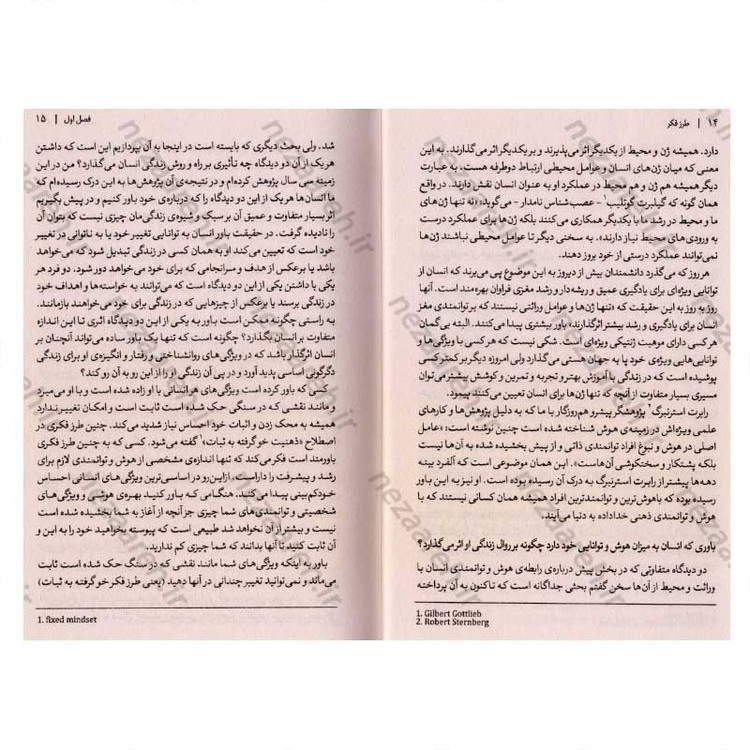 ۱۴ | طرز فکر
دارد. همیشه ژن و محیط از یکدیگر اثر می‌پذیرند و بر یکدیگر اثر می‌گذارند. به این
معنی که میان ژن‌های انسان و عوامل محیطی ارتباط دوطرفه هست. به عبارت
دیگر همیشه هم ژن و هم محیط در عملکرد او به عنوان انسان نقش دارند. در واقع
همان گونه که گیلبرت گوتلیب۱ - عصب‌شناس نامدار - می‌گوید: «نه تنها ژن‌های
ما و محیط در رشد ما با یکدیگر همکاری می‌کنند بلکه ژن‌ها برای عملکرد درست
به ورودی‌های محیط نیاز دارند.» به سخنی دیگر تا عوامل محیطی نباشند ژن‌ها
نمی‌توانند عملکرد درستی از خود بروز دهند.
هر روز که می‌گذرد دانشمندان بیش از دیروز به این موضوع پی می‌برند که انسان از
توانایی ویژه‌ای برای یادگیری عمیق و ریشه‌دار و رشد مغزی فراوان بهره‌مند است. آنها
روز به روز به این حقیقت که «تنها ژن‌ها و عوامل وراثتی نیستند که بر توانمندی مغز
انسان برای یادگرفتن و رشد بیشتر اثرگذارند» باور بیشتری پیدا می‌کنند. البته بی‌گمان
هر کسی دارای موهبت ژنتیکی ویژه‌ای است. شکی نیست که هر کسی با ویژگی‌ها و
توانایی‌هایی ویژه‌ی خود پا به جهان هستی می‌گذارد ولی امروزه دیگر بر کمتر کسی
پوشیده است که در زندگی با آموزش بهتر و تجربه و تمرین و کوشش بیشتر می‌توان
مسیری بسیار متفاوت از آنچه که تنها ژن‌ها برای انسان تعیین می‌کنند پیمود.
رابرت استرنبرگ۲ پژوهشگر پیشرو هم‌روزگار با ما که به دلیل پژوهش‌ها و کارهای
علمی ویژه‌اش در زمینه‌ی هوش شناخته شده است چنین نوشته است: «عامل
اصلی در هوش و نبوغ افراد توانمندی ذاتی و از پیش بخشیده شده به آن‌ها نیست
بلکه پشتکار و سختکوشی آن‌هاست.» این همان موضوعی است که آلفرد بینه
دهه‌ها پیشتر از رابرت استرنبرگ به درک آن رسیده است. او نیز به این باور
رسیده بود که باهوش‌ترین و توانمندترین افراد همیشه همان کسانی نیستند که با
هوش و توانمندی ذهنی خداداده به دنیا می‌آیند.
باوری که انسان به میزان هوش و توانایی خود دارد چگونه بر روال زندگی او اثر می‌گذارد؟
دو دیدگاه متفاوتی که در بخش پیش درباره‌ی رابطه‌ی هوش و توانمندی انسان با
وراثت و محیط از آن‌ها سخن گفتم بحثی جداگانه است که تاکنون به آن پرداخته
1. Gilbert Gottlieb
2. Robert Sternberg
فصل اول | ۱۵
شد. ولی بحث دیگری که بایسته است در اینجا به آن بپردازیم این است که داشتن
هر یک از آن دو دیدگاه چه تأثیری بر راه و روش زندگی انسان می‌گذارد؟ من در این
زمینه سی سال پژوهش کرده‌ام و در نتیجه‌ی آن پژوهش‌ها به این درک رسیده‌ام که
ما انسان‌ها هر یک از این دو دیدگاه را که درباره‌ی خود باور کنیم و در پیش بگیریم
اثر بسیار متفاوت و عمیق آن بر سبک و شیوه‌ی زندگی‌مان چیزی نیست که بتوان آن
را نادیده گرفت. در حقیقت باور انسان به توانایی تغییر خود یا به ناتوانی در تغییر
خود است که تعیین می‌کند او به همان کسی در زندگی تبدیل شود که می‌خواهد
باشد یا برعکس از هدف و سرانجامی که برای خود می‌خواهد دور شود. دو فرد هر
یکی با داشتن یکی از این دو دیدگاه است که می‌توانند به خواسته‌ها و اهداف خود
در زندگی برسند یا برعکس از چیزهایی که در زندگی برای خود می‌خواهند بازمانند.
به راستی چگونه ممکن است باور به یکی از این دو دیدگاه اثری تا این اندازه
متفاوت بر انسان بگذارد؟ چگونه است که تنها یک باور ساده می‌تواند آنچنان بر
انسان اثرگذار باشد که در ویژگی‌های روانشناختی و رفتار و انگیزه‌ی او برای زندگی
دگرگونی اساسی پدید آورد و در پی آن زندگی او را از این رو به آن رو کند؟
کسی که باور کرده است ویژگی‌های هر انسانی با او زاده شده است و با او می‌میرد
و مانند نقشی که در سنگی حک شده است ثابت است و امکان تغییر ندارد
همیشه به محک زدن و اثبات خود احساس نیاز شدید می‌کند. چنین طرز فکری در
اصطلاح «ذهنیت خو گرفته به ثبات»۱ گفته می‌شود. کسی که به چنین طرز فکری
باورمند است فکر می‌کند که تنها اندازه‌ی مشخصی از هوش و توانمندی لازم برای
رشد و پیشرفت را داراست. ازاین‌رو در اساسی‌ترین ویژگی‌های انسانی احساس
خودکم‌بینی پیدا می‌کند. هنگامی که باور کنید بهره‌ی هوشی و ویژگی‌های
شخصیتی و توانمندی‌های شما چیزی جز آنچه از آغاز به شما بخشیده شده است
نیست و بیشتر از آن نخواهد شد طبیعی است که پیوسته بخواهید خود را به این و
آن ثابت کنید تا آنها بدانند که شما چیزی کم ندارید.
باور به اینکه ویژگی‌های شما مانند نقشی که در سنگ حک شده است ثابت
می‌ماند و نمی‌توانید تغییر چندانی در آنها دهید (یعنی طرز فکر خو گرفته به ثبات)
1. fixed mindset
nezareh.ir